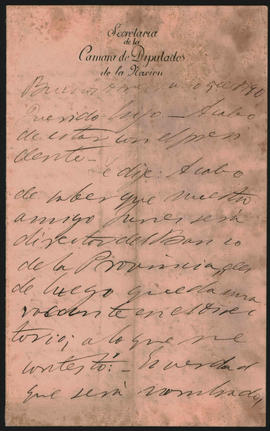 Secretaria
de la
Camara de Diputados
de la Nacion
Buenos Aires 1890
Querido Lujo - Acabo
de estar con el presi
dente -
Le dije: Acabo
de saber que nuestro
amigo Funes será
director del Banco
de la Provincia, des
de luego queda una
vacante en el Direc
torio; a lo que me
contestó: - Es verdad
que será nombrado,